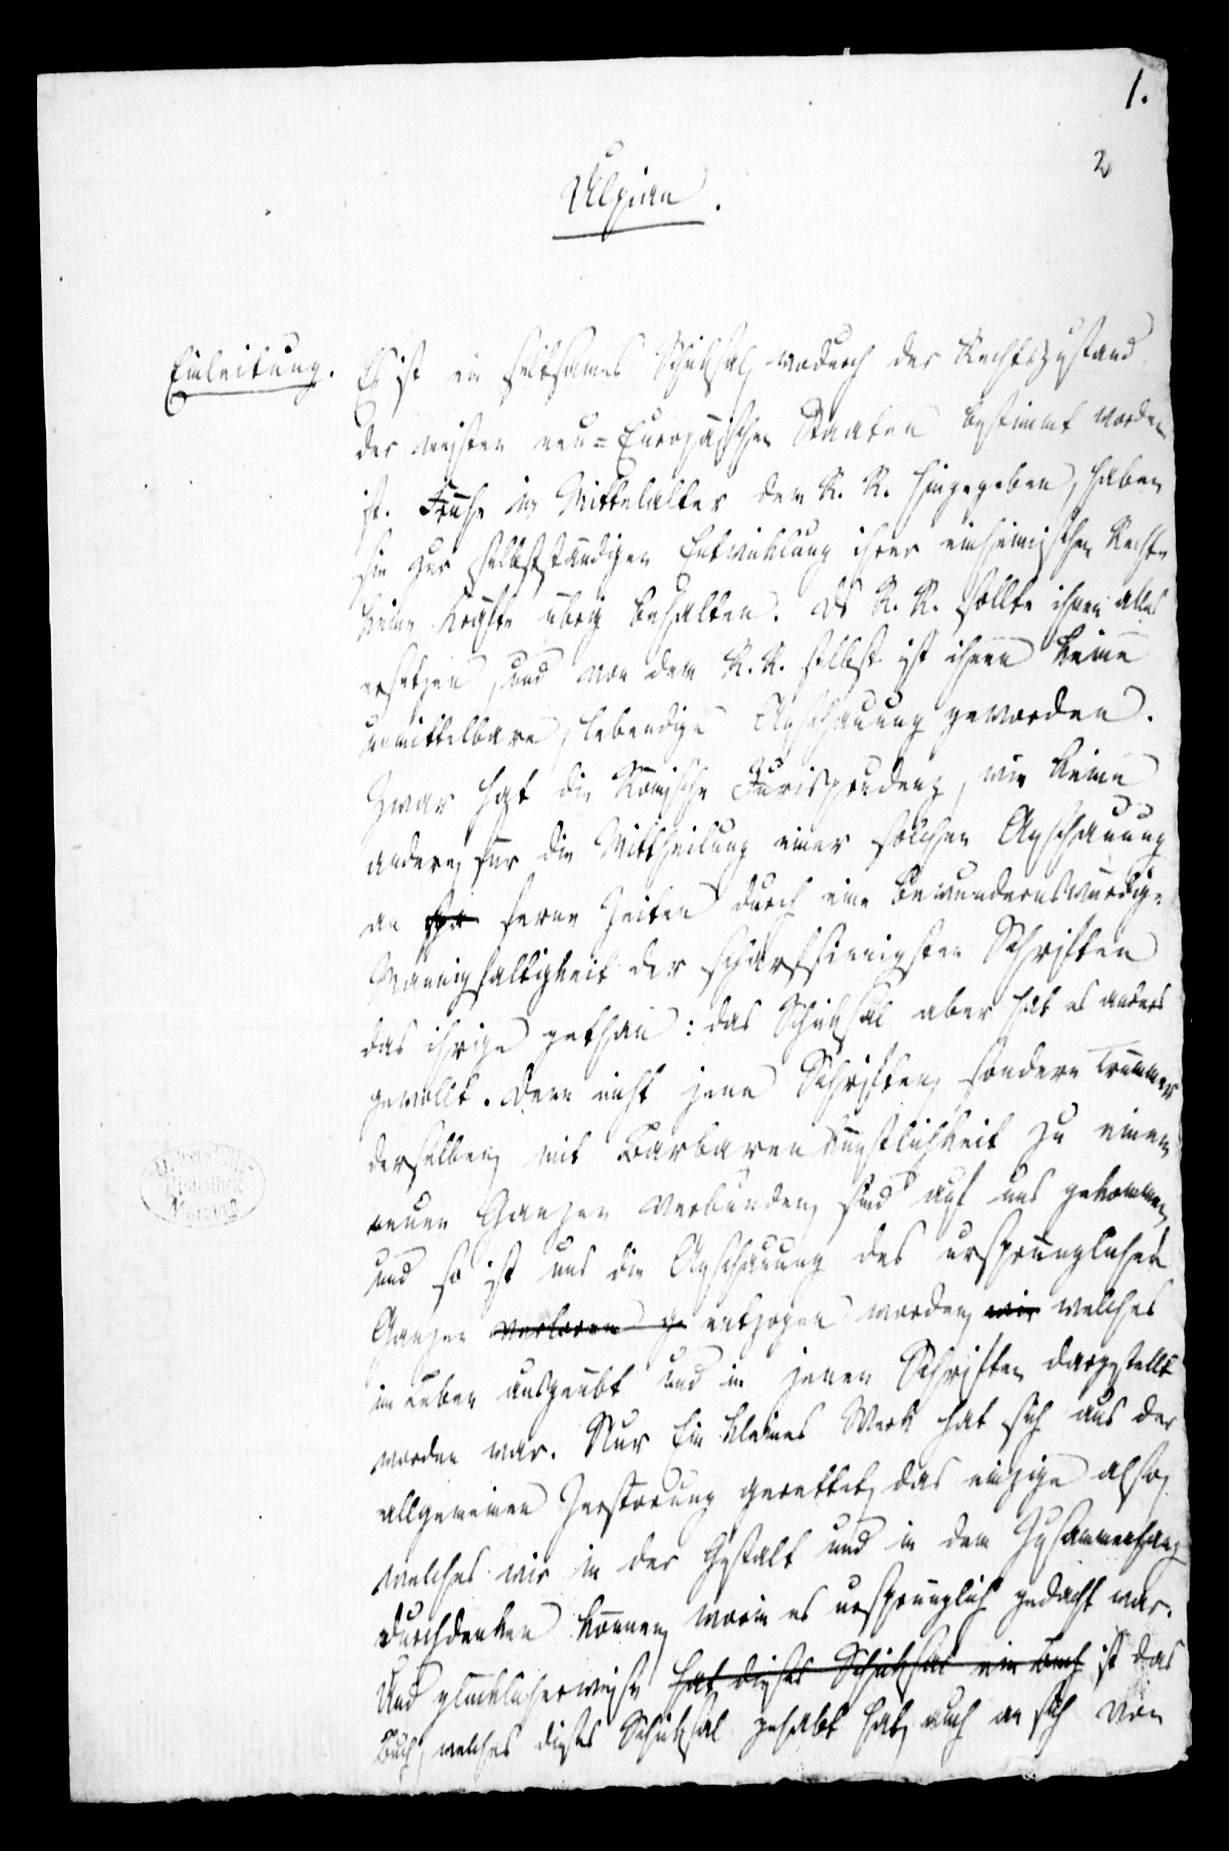 1.
2
Ulpian.
Einleitung.
Es ist ein seltsames Schicksal, wodurch der Rechtszustand
der meisten neu=Europäischen Staaten bestimmt worden
ist. Frühe im Mittelalter dem R. R. hingegeben, haben
sie zur selbstständigen Entwicklung ihrer einheimischen Rechte
keine Kräfte übrig behalten. Das R. R. sollte ihnen alles
ersetzen, und von dem R. R. selbst ist ihnen keine
unmittelbare, lebendige Anschauung geworden.
Zwar hat die Römische Jurisprudenz, wie keine
andere, für die Mittheilung einer solchen Anschauung
an ferne Zeiten durch eine bewundernswürdige
Mannigfaltigkeit der scharfsinnigsten Schriften
das ihrige gethan: das Schicksal aber hat es anders
gewollt. Denn nicht jene Schriften, sondern Trümmer
derselben, mit Barbaren Künstlichkeit zu einem
neuen Ganzen verbunden, sind auf uns gekommen,
und so ist uns die Anschauung des ursprünglichen
Ganzen verloren ge entzogen worden, wie welches
im Leben ausgeübt und in jenen Schriften dargestellt
worden war. Nur Ein kleines Werk hat sich aus der
allgemeinen Zerstörung gerettet, das einzige also,
welches wir in der Gestalt und in dem Zusammenhang
durchdenken können, worin es ursprünglich gedacht war.
Und glücklicherweise hat dieses Schicksal ein Buch ist das
Buch, welches dieses Schicksal gehabt hat, auch an sich von